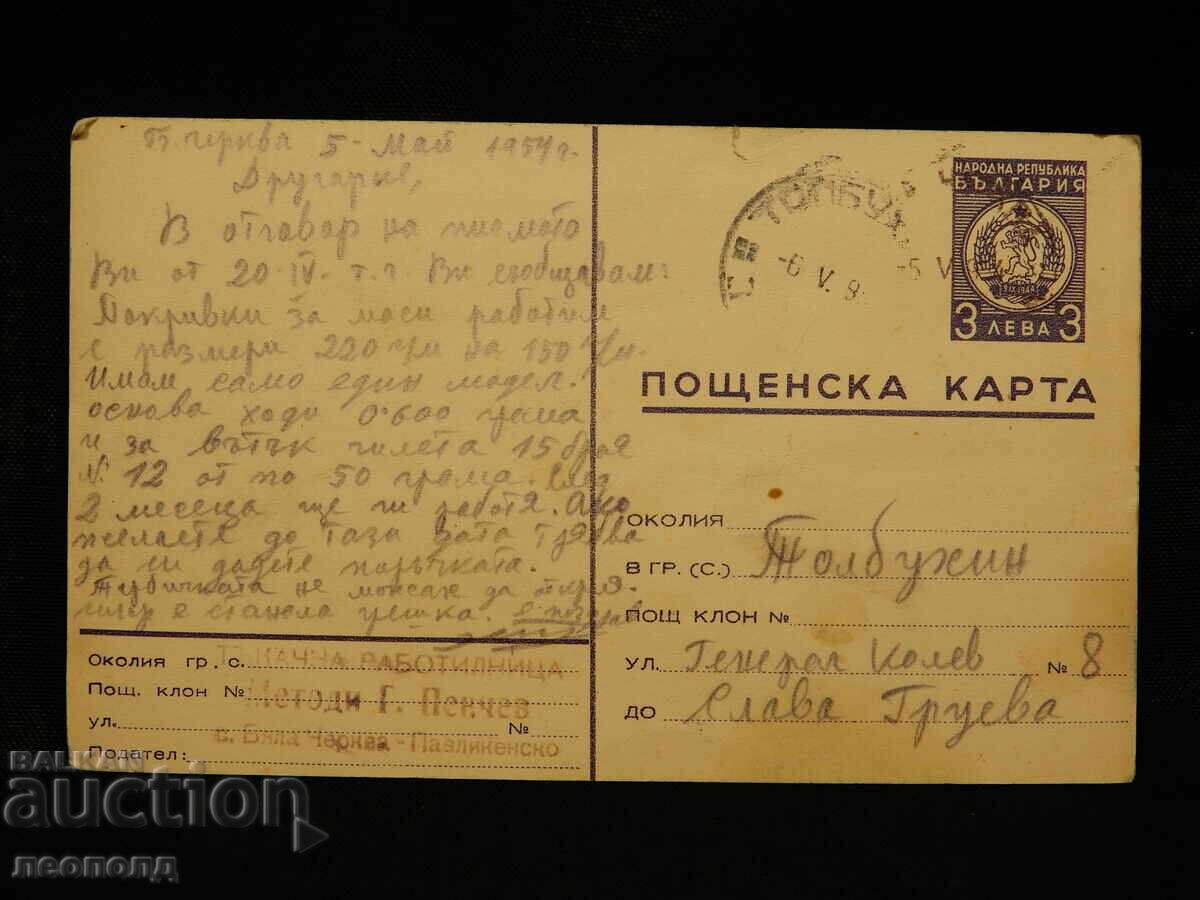 Б. черква 5 - Май 1954 г.
Другарке,
В отговор на писмото
Ви от 20. IV. т. г. Ви съобщавам:
Покривки за маси работим
с размери 220 см на 150
Имам само един модел.
основа ходи 0.600 грама
и за вътък гилета 15 броя
№ 12 от по 50 грама. След
2 месеца ще ги работя. Ако
желаете до таза дата трябва
да си дадете поръчката.
не можах да
е станала грешка.
Околия гр. с.
Пощ. клон №
ул. №
Подател:
ТЪКАЧНА РАБОТИЛНИЦА
Методи Г. Пенчев
с. Бяла Черква - Павликенско
ТОЛБУХ
-6 V.
-5 V
НАРОДНА РЕПУБЛИКА
БЪЛГАРИЯ
9 IX 1944
3 ЛЕВА 3
ПОЩЕНСКА КАРТА
ОКОЛИЯ
В ГР. (С.) Толбухин
ПОЩ КЛОН №
УЛ. Генерал Колев № 8
ДО Слава Груева
BALKAN
auction
леополд